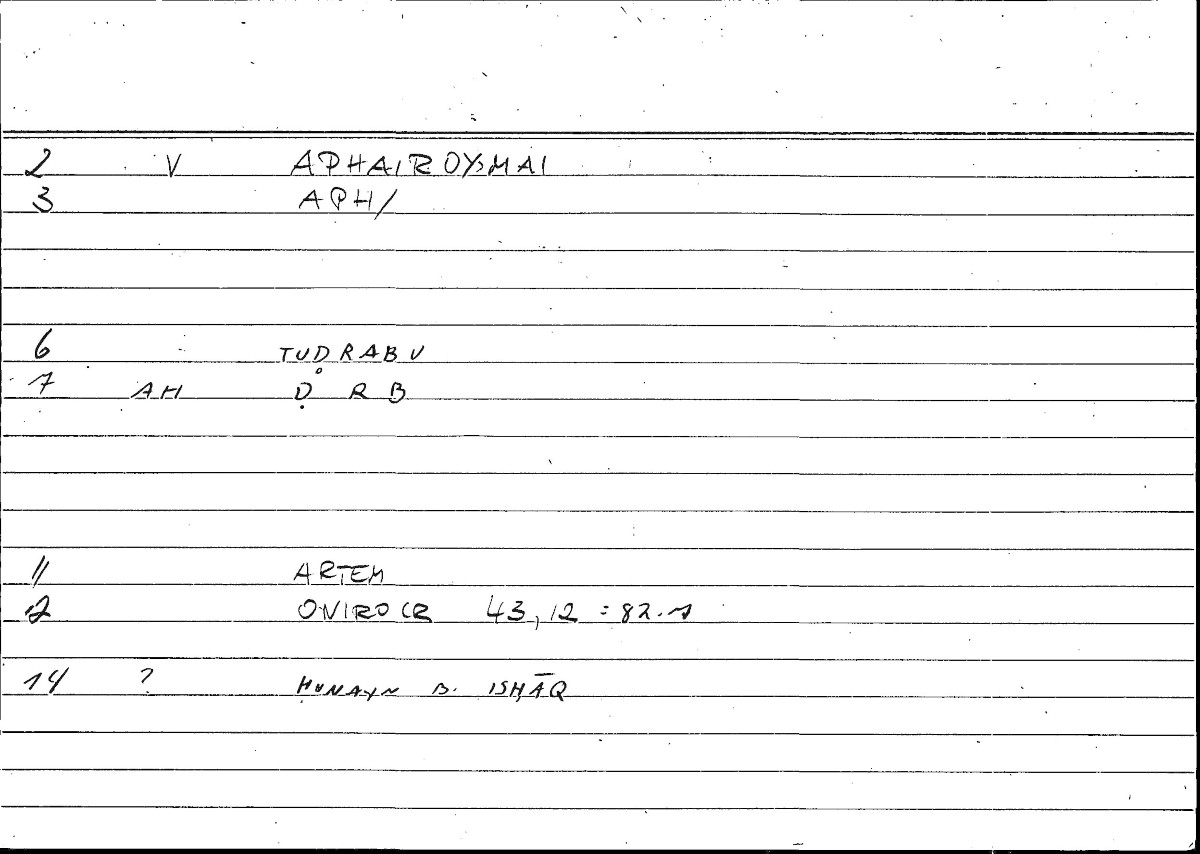 2 V APHAIROYMAI
3 APH/
6 TUḌRABU
7 AH Ḍ R B
11 ARTEM
12 ONIROCR 43,12 = 82.1
14 ? ḤUNAYN B. ISḤĀQ